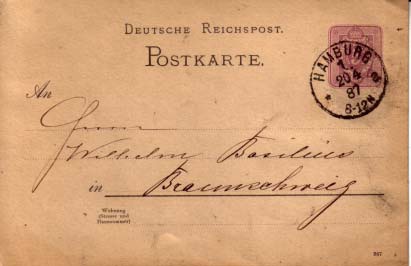 DEUTSCHE REICHSPOST.
POSTKARTE.
HAMBURG
1.
20 4
87
8-12N
An
Herrn
Wilhelm Basilius
in Braunschweig
Wohnung
(Strasse und
Hausnummer)